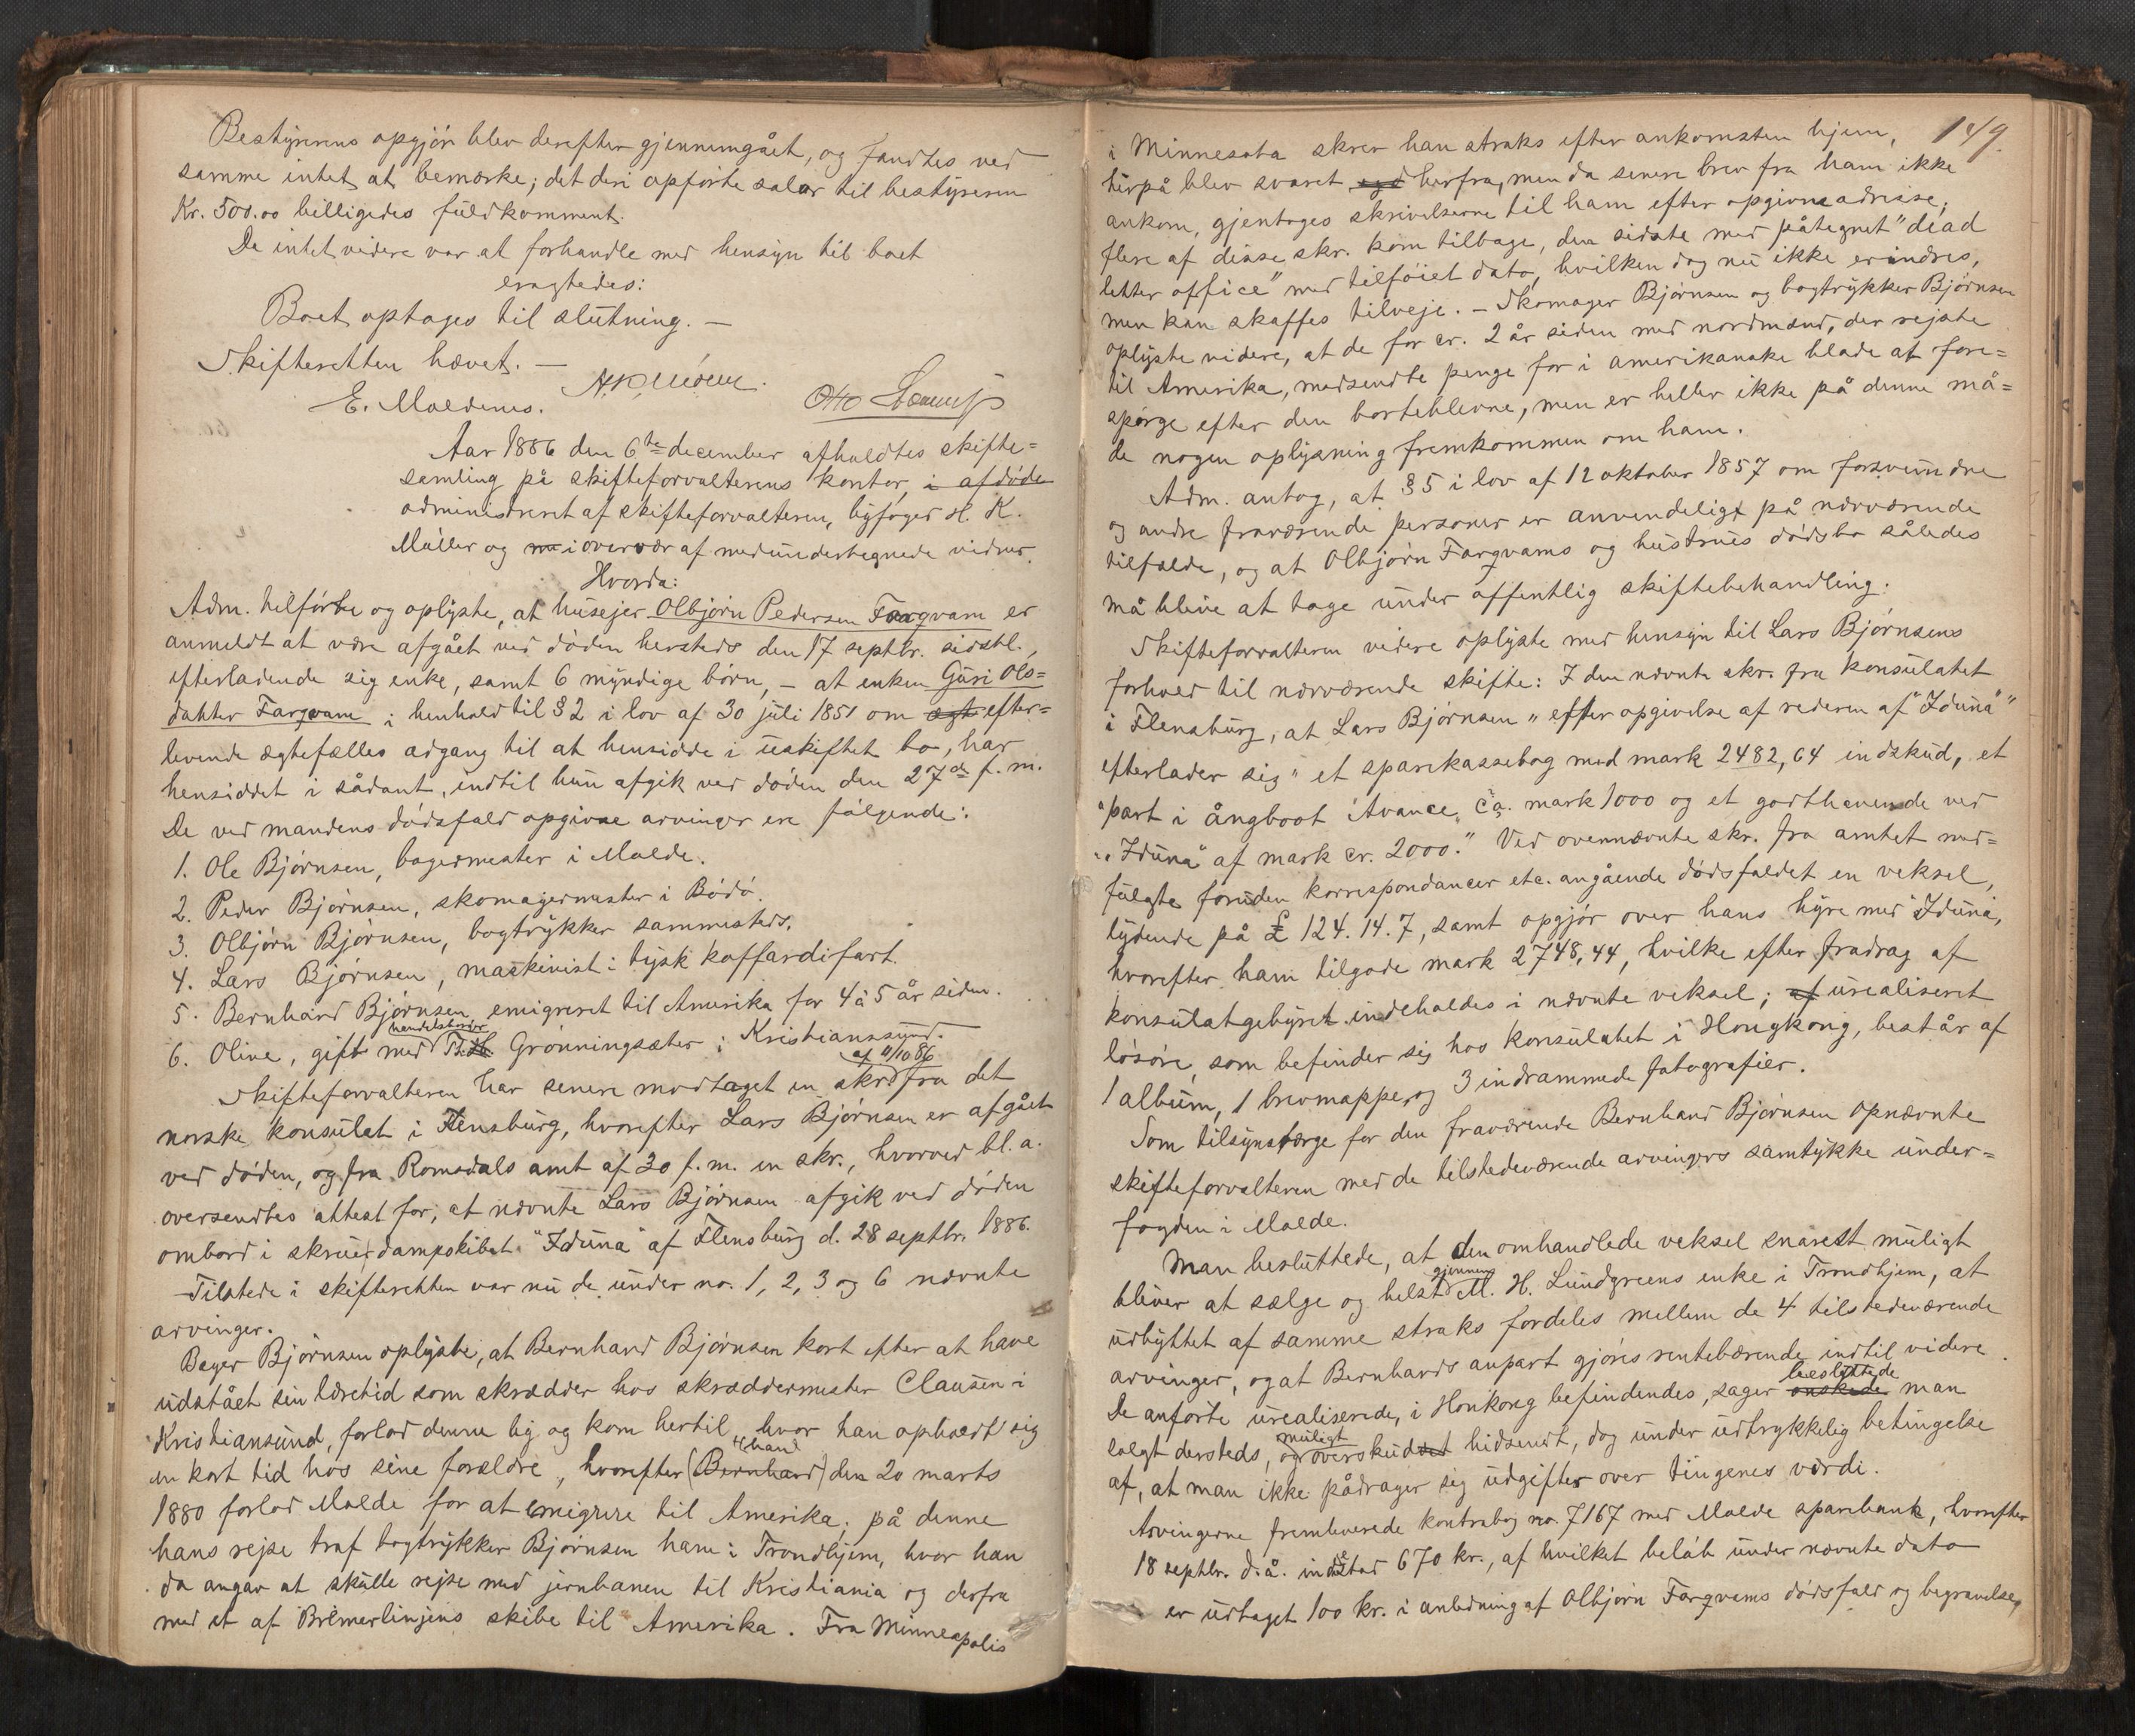 Bestyrerens opgjør blev derefter gjennemgået, og fandtes ved
samme intet at bemærke; det deri opførte salær til bestyreren
Kr. 500.00 billigedes fuldkomment.
Da intet videre var at forhandle med hensyn til boet
eragtedes:
Boet optages til slutning. —
Skifteretten hævet. —
E. Moldenes.
Otto
Aar 1886 den 6te december afholdtes skifte=
samling på skifteforvalterens kontor, i afdøde
administreret af skifteforvalteren, byfoged H. K.
Müller og i overvær af medundertegnede vidner.
Hvorda:
Adm. tilførte og oplyste, at husejer Olbjørn Pedersen Fargvam er
anmeldt at være afgået ved døden hersteds den 17 septbr. sidstl.,
efterladende sig enke, samt 6 myndige børn, – at enken Guri Ols=
datter Fargvam i henhold til § 2 i lov af 30 juli 1851 om ægt efter=
levende ægtefælles adgang til at hensidde i uskiftet bo, har
hensiddet i sådant, indtil hun afgik ved døden den 27de f. m.
De ved mandens dødsfald opgivne arvinger ere følgende:
1. Ole Bjørnsen, bagermester i Molde.
2. Peder Bjørnsen, skomagermester i Bodø.
3. Olbjørn Bjørnsen, bogtrykker sammesteds.
4. Lars Bjørnsen, maskinist i tysk koffardifart.
5. Bernhard Bjørnsen, emigreret til Amerika for 4 à 5 år siden.
handelsborger
6. Oline, gift med Grønningsæter i Kristianssund.
af 11/10 86
Skifteforvalteren har senere modtaget en skr. fra det
norske konsulat i Flensburg, hvorefter Lars Bjørnsen er afgået
ved døden, og fra Romsdals amt af 30 f. m. en skr., hvorved bl. a.
oversendtes attest for, at nævnte Lars Bjørnsen afgik ved døden
ombord i skruedampskibet "Iduna" af Flensburg d. 28 septbr. 1886.
Tilstede i skifteretten var nu de under no. 1, 2, 3 og 6 nævnte
arvinger.
Bager Bjørnsen oplyste, at Bernhard Bjørnsen kort efter at have
udstået sin læretid som skrædder hos skræddermester Clausen i
Kristiansund, forlod denne by og kom hertil, hvor han opholdt sig
han
en kort tid hos sine forældre, hvorefter (Bernhard) den 20 marts
1880 forlod Molde for at emigrere til Amerika; på denne
hans rejse traf bogtrykker Bjørnsen ham i Trondhjem, hvor han
da angav at skulle rejse med jernbanen til Kristiania og derfra
med et af Bremerlinjens skibe til Amerika. Fra Minneapolis
149.
i Minnesota skrev han straks efter ankomsten hjem,
herpå blev svaret herfra, men da senere brev fra ham ikke
ankom, gjentoges skrivelserne til ham efter opgivne adresse;
flere af disse skr. kom tilbage, den sidste med påtegnet "dead
letter office" med tilføiet dato, hvilken dog nu ikke erindres,
men kan skaffes tilveje. – Skomager Bjørnsen og bogtrykker Bjørnsen
oplyste videre, at de for cr. 2 år siden med nordmænd, der rejste
til Amerika, medsendte penge for i amerikanske blade at fore=
spørge efter den bortblevne, men er heller ikke på denne må=
de nogen oplysning fremkommen om ham.
Adm. antog, at § 5 i lov af 12 oktober 1857 om forsvundne
og andre fraværende personer er anvendeligt på nærværende
tilfælde, og at Olbjørn Fargvams og hustrus dødsbo således
må blive at tage under offentlig skiftebehandling.
Skifteforvalteren videre oplyste med hensyn til Lars Bjørnsens
forhold til nærværende skifte: I den nævnte skr. fra konsulatet
i Flensburg, at Lars Bjørnsen "efter opgivelse af rederen af "Iduna"
efterlader sig" et sparekassebog med mark 2482,64 indskud, et
part i ångboot Avance ca. mark 1000 og et godthavende ved
"Iduna" af mark cr. 2000." Ved ovennævnte skr. fra amtet med=
fulgte foruden korrespondancer etc. angående dødsfaldet en veksel,
lydende på £ 124. 14. 7, samt opgjør over hans hyre med "Iduna,
hvorefter ham tilgode mark 2748,44, hvilke efter fradrag af
konsulatgebyret indeholdes i nævnte veksel; af urealiseret
løsøre, som befinder sig hos konsulatet i Hongkong, består af
1 album, 1 brevmappe, og 3 indrammede fotografier.
Som tilsynsværge for den fraværende Bernhard Bjørnsen opnævnte
skifteforvalteren med de tilstedeværende arvingers samtykke under=
fogden i Molde.
Man besluttede, at den omhandlede veksel snarest muligt
gjennem
bliver at sælge og helst M. H. Lundgreens enke i Trondhjem, at
udbyttet af samme straks fordeles mellem de 4 tilstedeværende
arvinger, og at Bernhards anpart gjøres rentebærende indtil videre.
besluttede
De anførte urealiserede, i Honkong befindendes, sager ønskede man
muligt
solgt dersteds, og overskudet hidsendt, dog under udtrykkelig betingelse
af, at man ikke pådrager sig udgifter over tingenes værdi.
Arvingerne fremleverede kontrabog no. 7167 med Molde sparebank, hvorefter
18 septbr. d. å. indestod 670 kr., af hvilket beløb under nævnte dato
er udtaget 100 kr. i anledning af Olbjørn Fargvams dødsfald og begravelse,